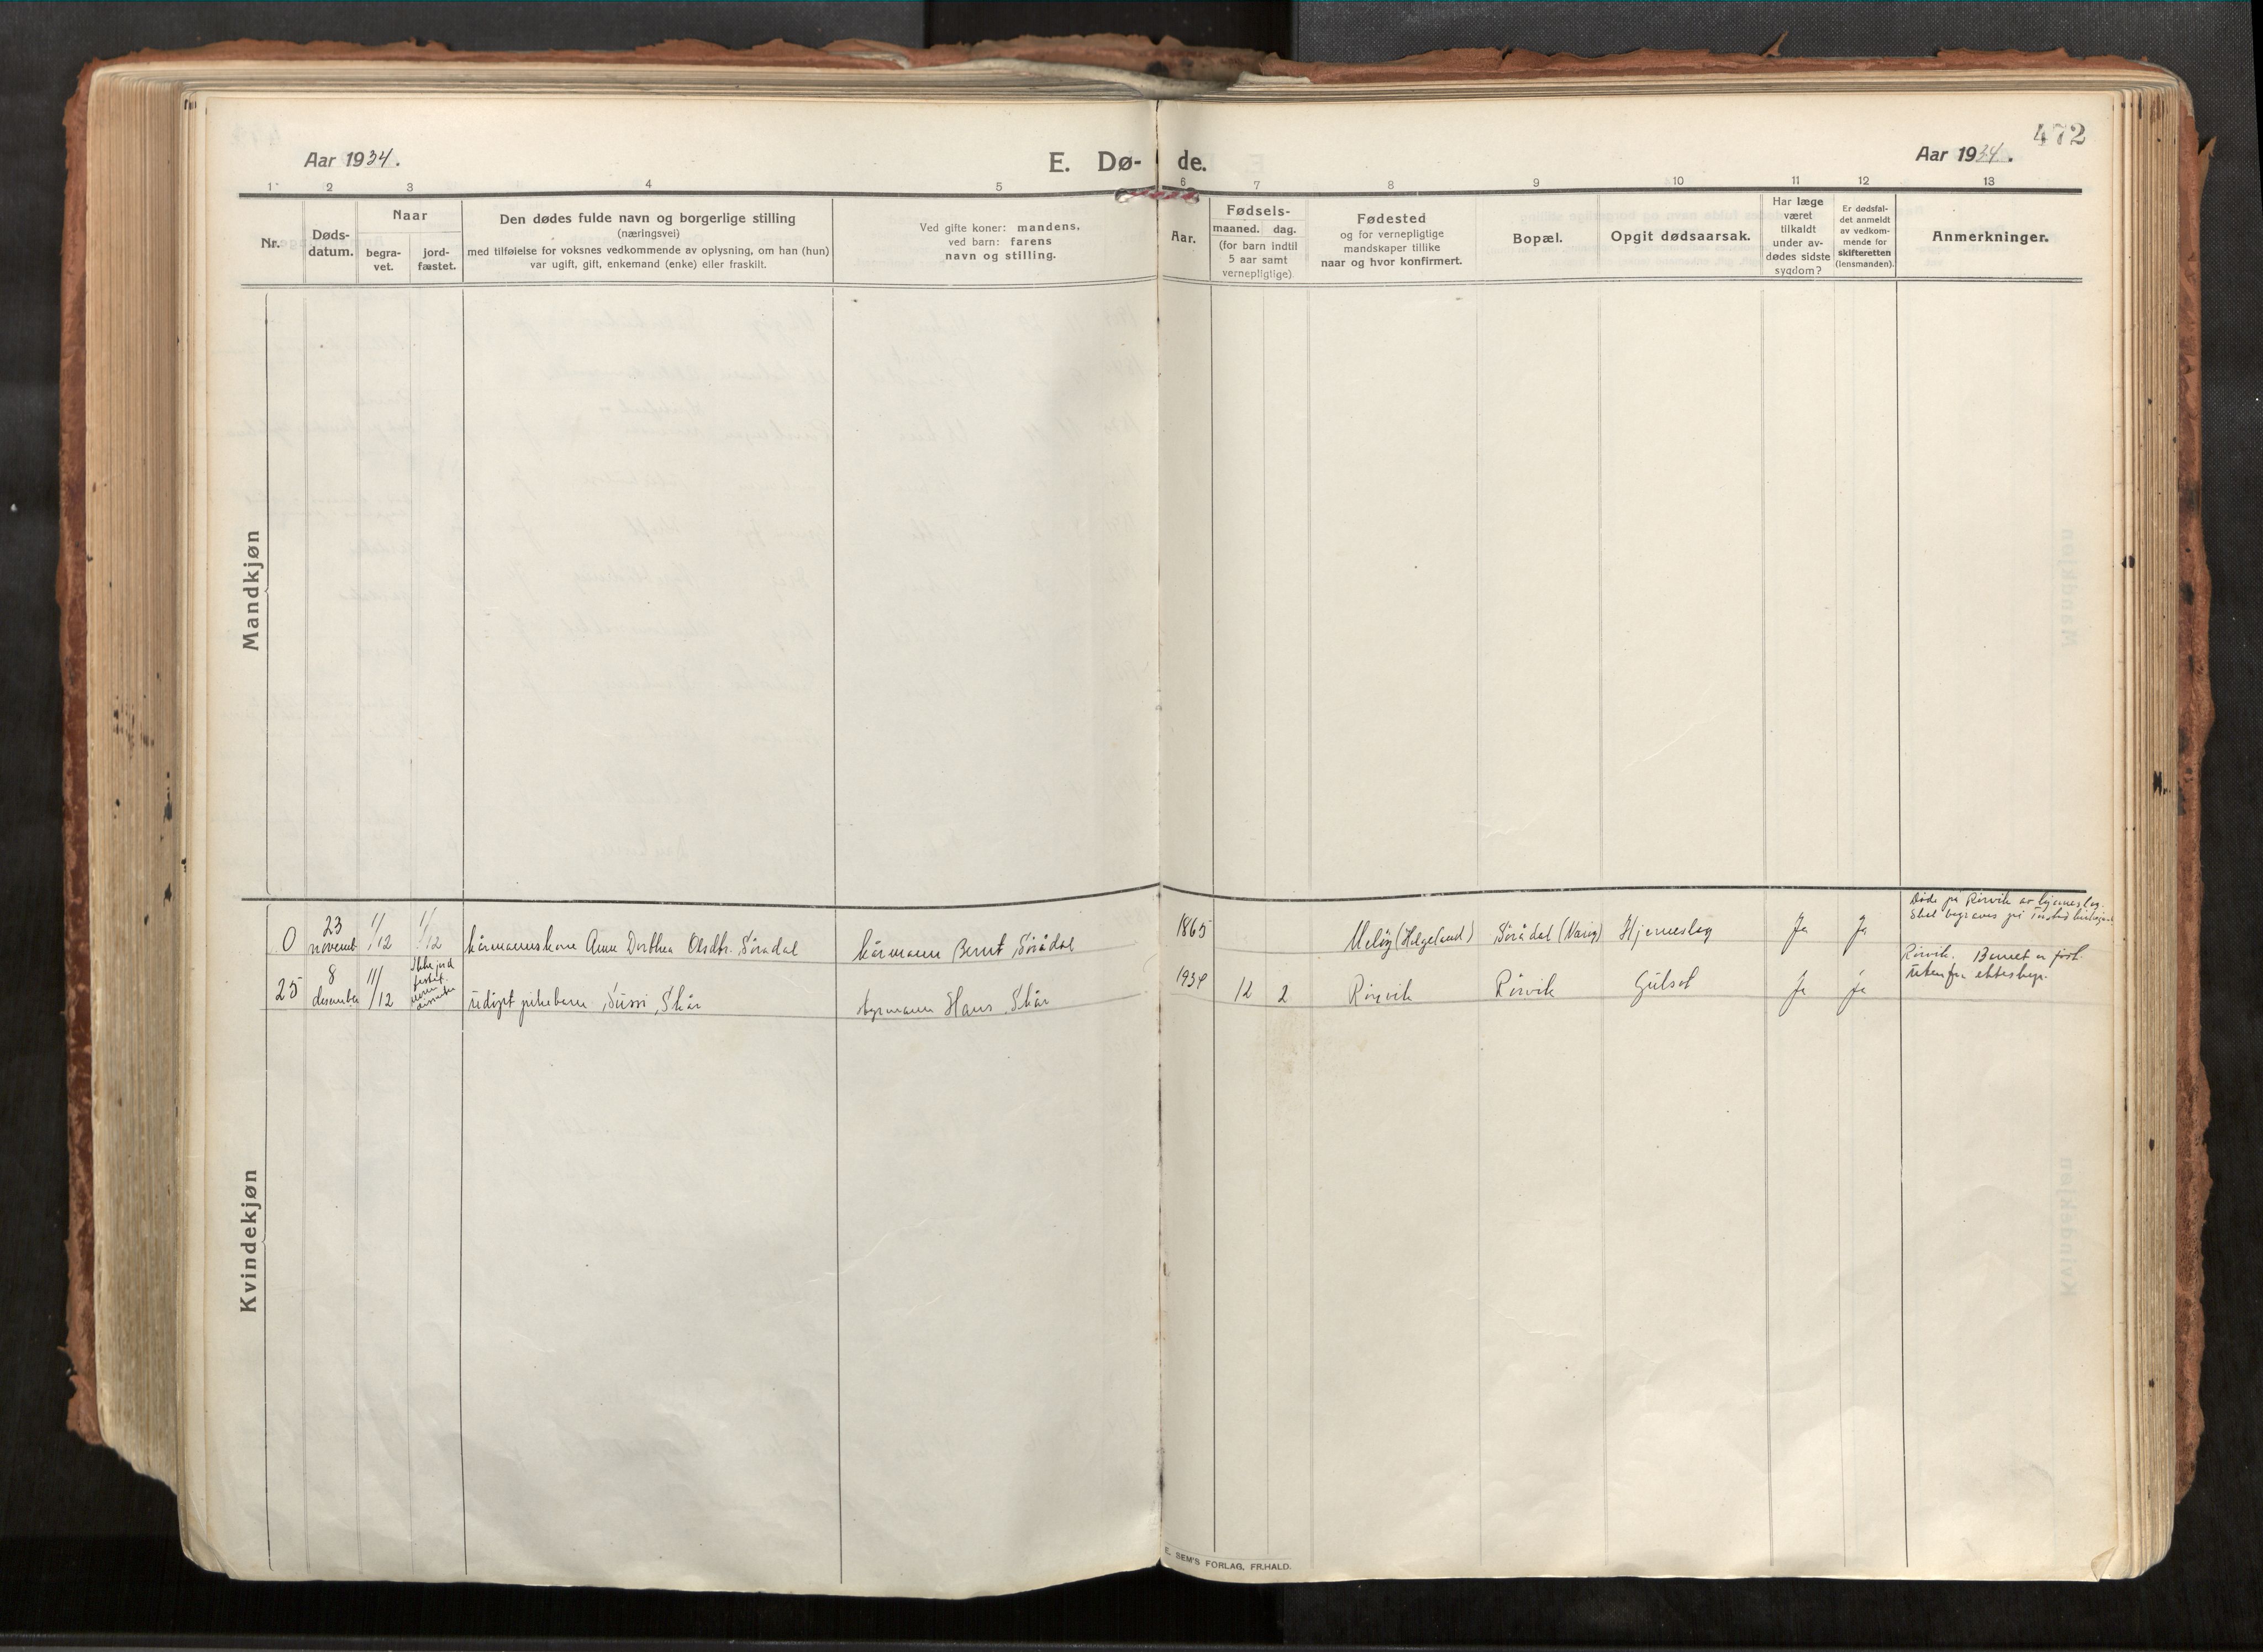 472
Aar 1934.
E. Dø-
de.
Aar 1934.
1 2 3 4 5 6 7 8 9 10 11 12 13
Nr.
Døds-
datum.
Naar
begra-
vet.
jord-
fæstet.
Den dødes fulde navn og borgerlige stilling
(næringsvei)
med tilføielse for voksnes vedkommende av oplysning, om han (hun)
var ugift, gift, enkemand (enke) eller fraskilt.
Ved gifte koner: mandens,
ved barn: farens
navn og stilling.
Aar.
Fødsels-
maaned. dag.
(for barn indtil
5 aar samt
vernepligtige)
Fødested
og for vernepligtige
mandskaper tillike
naar og hvor konfirmert.
Bopæl.
Opgit dødsaarsak.
Har læge
været
tilkaldt
under av-
dødes sidste
sygdom?
Er dødsfal-
det anmeldt
av vedkom-
mende for
skifteretten
(lensmanden).
Anmerkninger.
Mandkjøn
0 23 novemb. 1/12 1/12 kårmannskone Anna Dorthea Olsdtr. Sörådal kårmann Bernt Sörådal 1865 Melöy (Helgeland) Sörådal (Näröy) Hjerneslag Ja Ja
Döde på Rörvik av hjerneslag.
Skal begraves på
25 8 desember 11/12 Ikke jord
festet
udöpt pikebarn Sussi Skår Hans Skår 1934 12 2 Rörvik Rörvik Gulsot Ja Ja
Rörvik. Barnet er född
utenfor ekteskap.
Kvindekjøn
E. SEM'S FORLAG, FR.HALD.